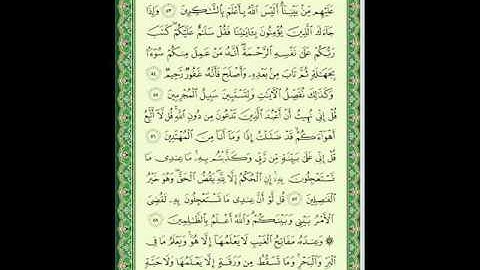 عَلَيْهِم مِّنۢ بَيْنِنَآ أَلَيْسَ ٱللَّهُ بِأَعْلَمَ بِٱلشَّٰكِرِينَ ٥٣ وَإِذَا
جَآءَكَ ٱلَّذِينَ يُؤْمِنُونَ بِـَٔايَٰتِنَا فَقُلْ سَلَٰمٌ عَلَيْكُمْ كَتَبَ
رَبُّكُمْ عَلَىٰ نَفْسِهِ ٱلرَّحْمَةَ أَنَّهُۥ مَنْ عَمِلَ مِنكُمْ سُوٓءًۢا
بِجَهَٰلَةٍ ثُمَّ تَابَ مِنۢ بَعْدِهِۦ وَأَصْلَحَ فَأَنَّهُۥ غَفُورٌ رَّحِيمٌ ٥٤
وَكَذَٰلِكَ نُفَصِّلُ ٱلْـَٔايَٰتِ وَلِتَسْتَبِينَ سَبِيلُ ٱلْمُجْرِمِينَ ٥٥
قُلْ إِنِّى نُهِيتُ أَنْ أَعْبُدَ ٱلَّذِينَ تَدْعُونَ مِن دُونِ ٱللَّهِ قُل لَّآ أَتَّبِعُ
أَهْوَآءَكُمْ قَدْ ضَلَلْتُ إِذًا وَمَآ أَنَا۠ مِنَ ٱلْمُهْتَدِينَ ٥٦
قُلْ إِنِّى عَلَىٰ بَيِّنَةٍ مِّن رَّبِّى وَكَذَّبْتُم بِهِۦ مَا عِندِى مَا
تَسْتَعْجِلُونَ بِهِۦٓ إِنِ ٱلْحُكْمُ إِلَّا لِلَّهِ يَقُصُّ ٱلْحَقَّ وَهُوَ خَيْرُ
ٱلْفَٰصِلِينَ ٥٧ قُل لَّوْ أَنَّ عِندِى مَا تَسْتَعْجِلُونَ بِهِۦ لَقُضِىَ
ٱلْأَمْرُ بَيْنِى وَبَيْنَكُمْ وَٱللَّهُ أَعْلَمُ بِٱلظَّٰلِمِينَ ٥٨
۞ وَعِندَهُۥ مَفَاتِحُ ٱلْغَيْبِ لَا يَعْلَمُهَآ إِلَّا هُوَ وَيَعْلَمُ مَا فِى
ٱلْبَرِّ وَٱلْبَحْرِ وَمَا تَسْقُطُ مِن وَرَقَةٍ إِلَّا يَعْلَمُهَا وَلَا حَبَّةٍ